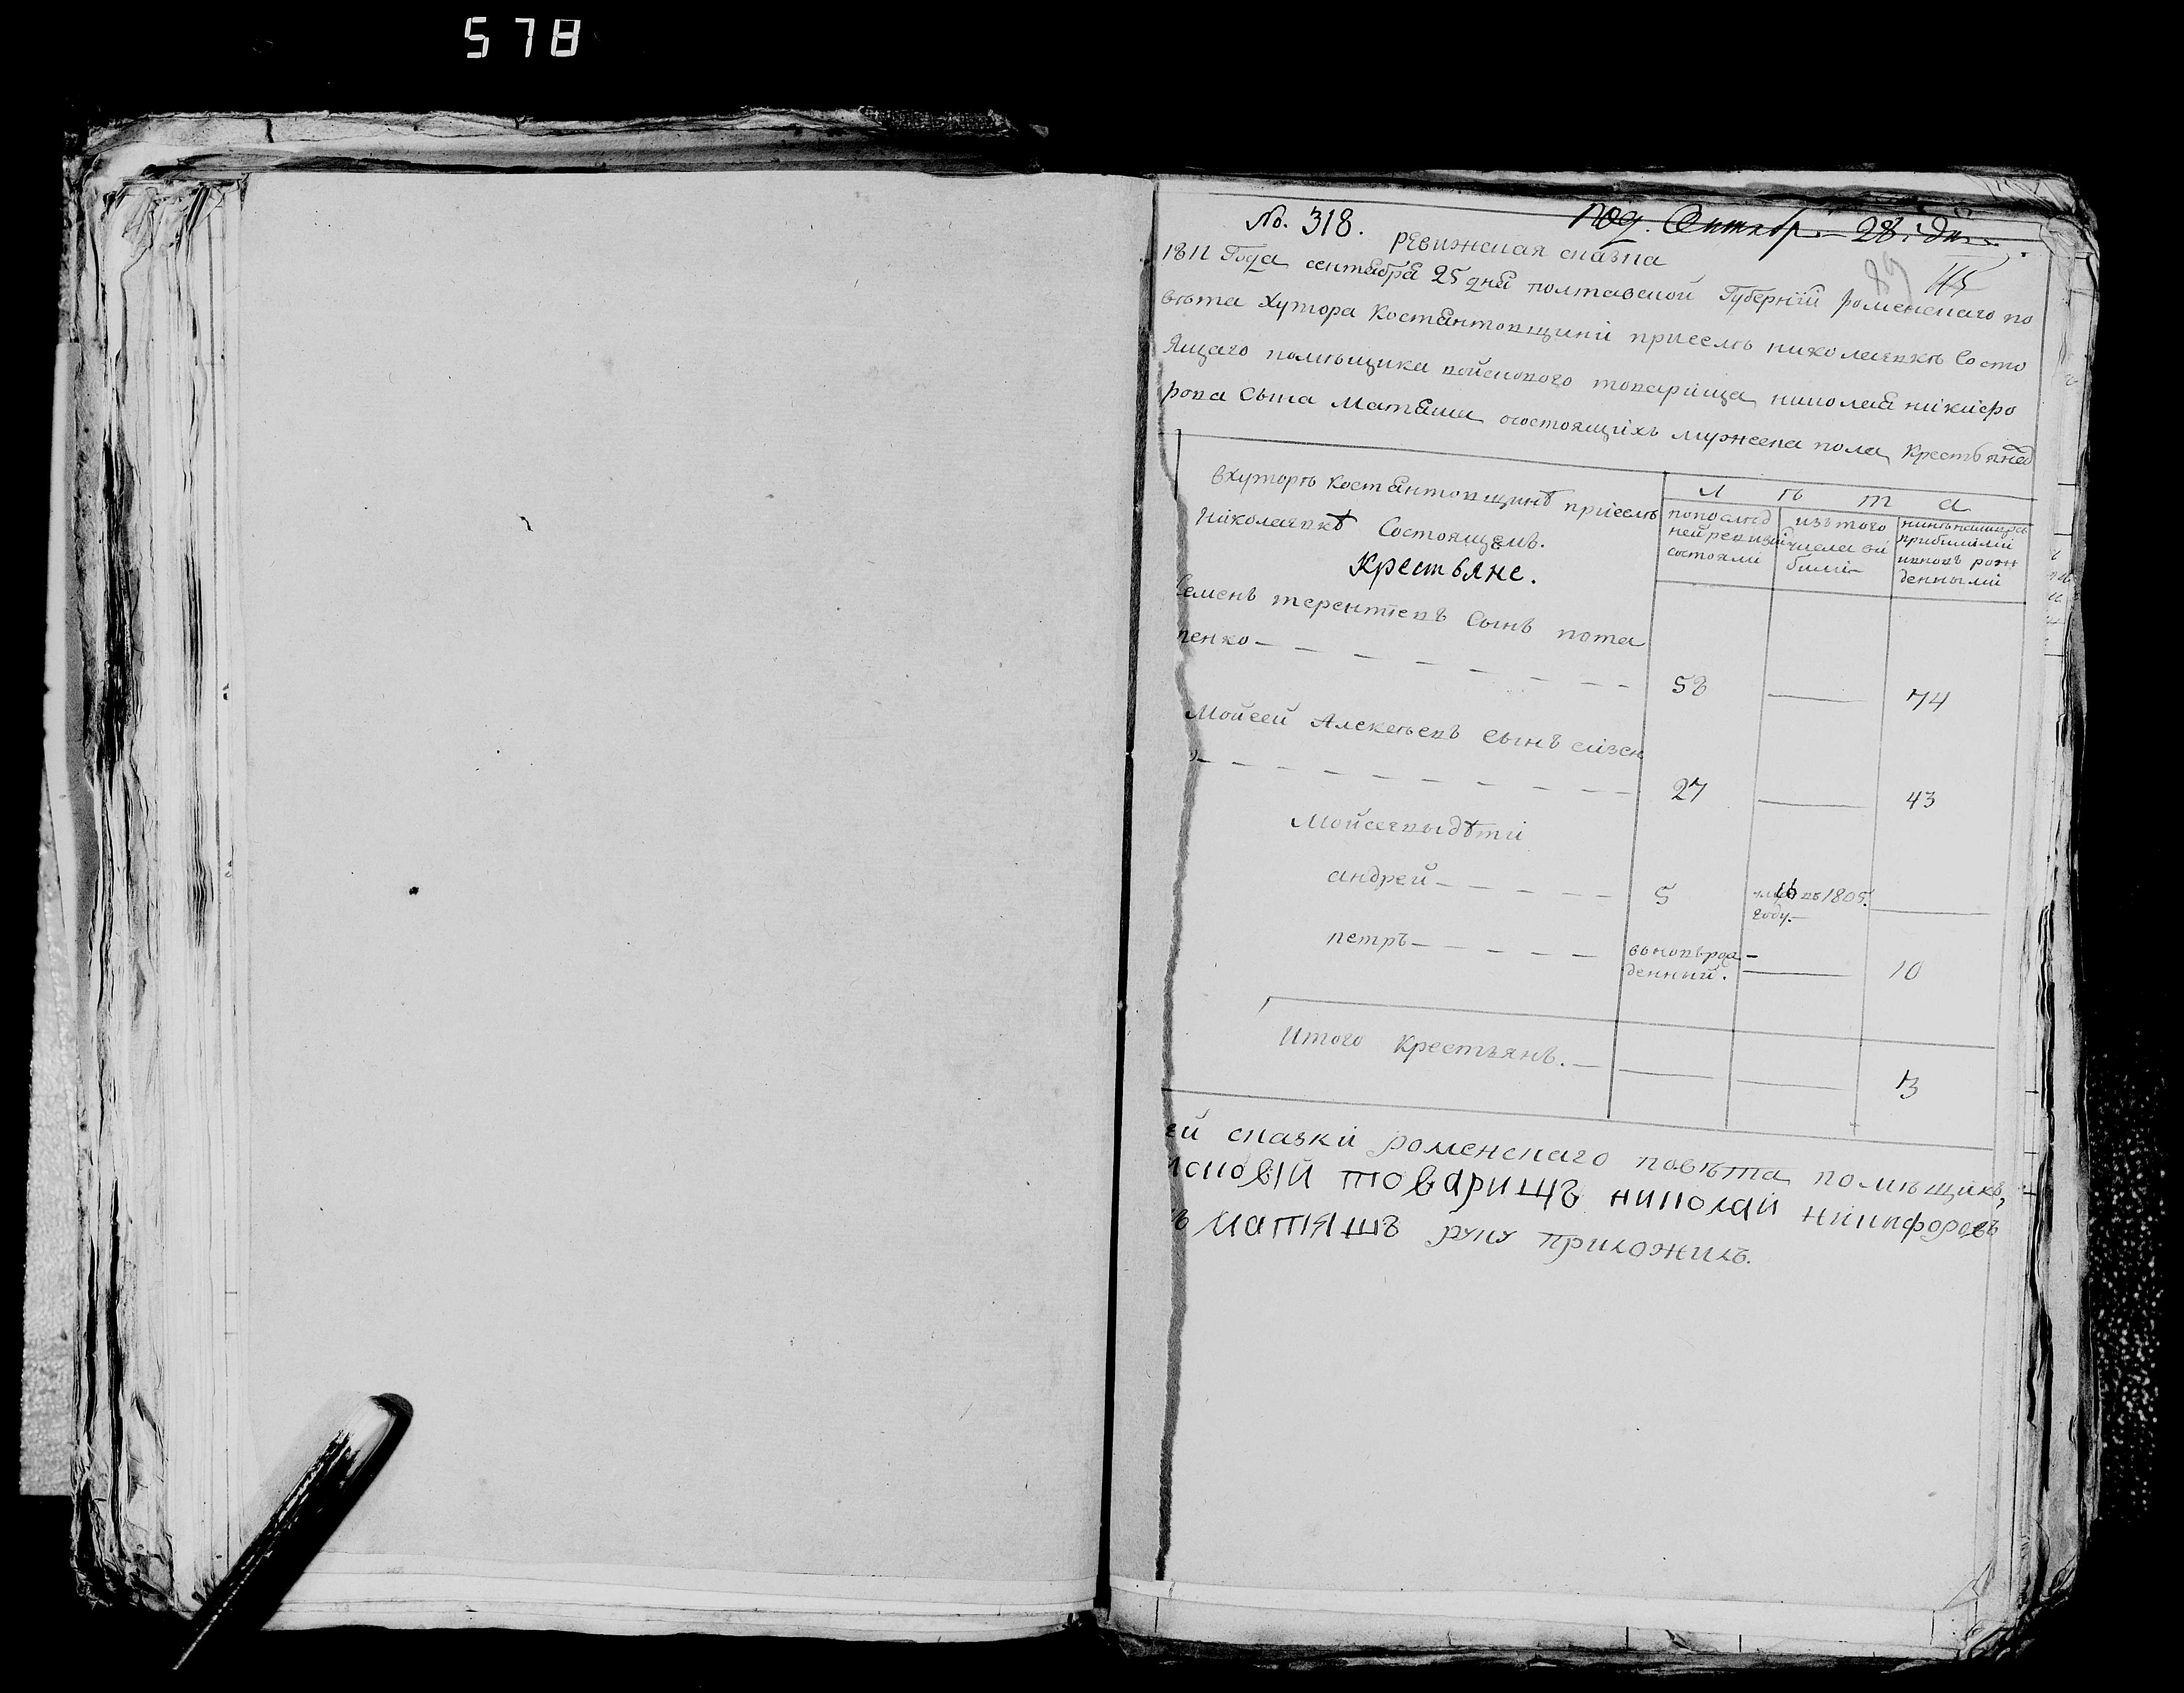 578
No. 318. Под. Октябр. 28. дня
ревижская сказка
89 115
1811 Года сентября 25 дня полтавской Губерний роменского по
вѣта Хутора Костянтовщини присѣлѣ николаевкѣ Состо
ящаго помѣщика войскового товарища николая никифо
рова Сына Матяша осостоящихъ мужеска пола крестьянед
вхуторѣ костянтовщинѣ присѣлѣ
Николаевкѣ Состоящемъ.
Крестьяне.
Л ѣ т а
попослѣд
ней ревизий
состояли
изътого
числа ви
били
нинѣ налицо съ
прибилими
иновъ рож
денными
Семенъ терентиевъ Сынъ пота
пенко 58 — 74
Мойсей Алексѣевъ сынъ сизен
ко 27 — 43
Мойсеевыдѣти
андрей 5 въ1805.
году. —
петръ вновьрож
денний. — 10
Итого крестьянъ. — — — 3
ей сказки роменского повѣта помѣщикъ,
йсковій товарищъ николай никифоровъ
ъ матяшъ руку приложилъ.